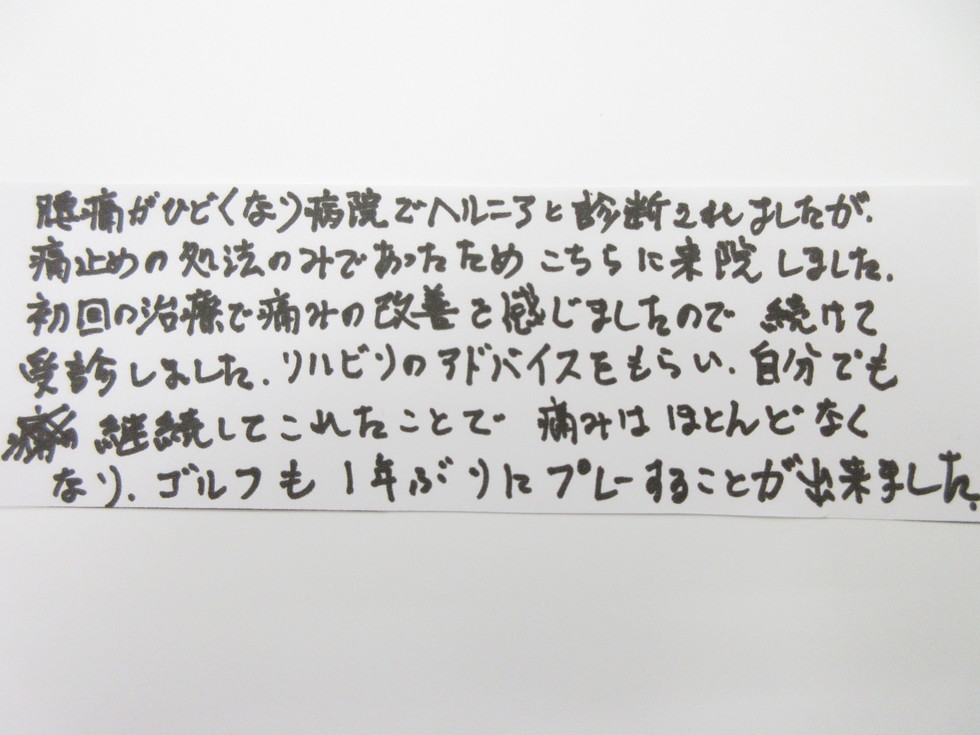 腰痛がひどくなり病院でヘルニアと診断されましたが、
痛止めの処法のみであったため こちらに来院しました。
初回の治療で痛みの改善を感じましたので 続けて
受診しました。リハビリのアドバイスをもらい、自分でも
継続してこれたことで 痛みは ほとんどなく
なり、ゴルフも 1年ぶりに プレーすることが出来ました。